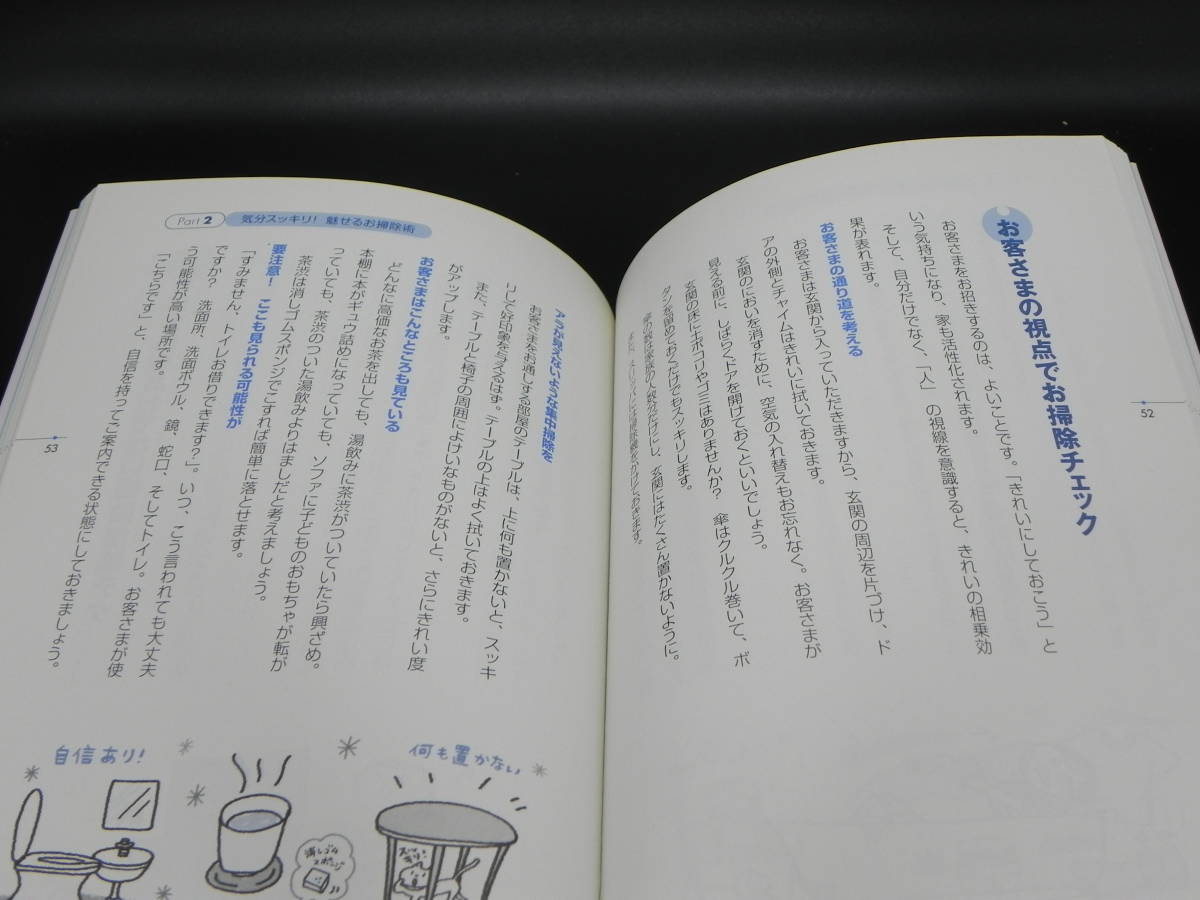 お客さまの視点でお掃除チェック
お客さまをお招きするのは、よいことです。「きれいにしておこう」と
いう気持ちになり、家も活性化されます。
そして、自分だけでなく、「人」の視線を意識すると、きれいの相乗効
果が表れます。
お客さまの通り道を考える
お客さまは玄関から入っていただきますから、玄関の周辺を片づけ、ド
アの外側とチャイムはきれいに拭いておきます。
玄関のにおいを消すために、空気の入れ替えもお忘れなく。お客さまが
見える前に、しばらくドアを開けておくといいでしょう。
玄関の床に土ボコリやゴミはありませんか? 傘はクルクル巻いて、ボ
タンを留めておくだけでもスッキリします。
傘の数は家族の人数分だけにし、玄関にはたくさん置かないように。
52
Part 2 気分スッキリ! 魅せるお掃除術
アラが見えないような集中掃除を
お客さまをお通しする部屋のテーブルは、上に何も置かないと、スッキ
リして好印象を与えるはず。テーブルの上はよく拭いておきます。
また、テーブルと椅子の周囲によけいなものがないと、さらにきれい度
がアップします。
お客さまはこんなところも見ている
どんなに高価なお茶を出しても、湯飲みに茶渋がついていたら興ざめ。
本棚に本がギュウ詰めになっていても、ソファに子どものおもちゃが転が
っていても、茶渋のついた湯飲みよりはましだと考えましょう。
茶渋は消しゴムスポンジでこすれば簡単に落とせます。
要注意! ここも見られる可能性が
「すみません、トイレお借りできます?」。いつ、こう言われても大丈夫
ですか? 洗面所、洗面ボウル、鏡、蛇口、そしてトイレ。お客さまが使
う可能性が高い場所です。
「こちらです」と、自信を持ってご案内できる状態にしておきましょう。
53
何も置かない
スッキリ!
消しゴムスポンジ
自信あり!